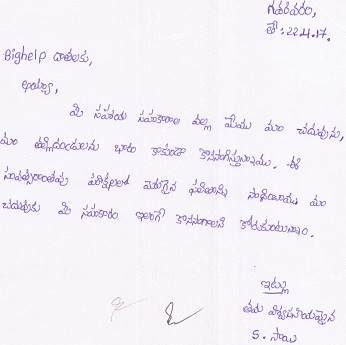 గవరవరం,
తే: 22.4.17.
Bighelp దాతలకు,
అయ్యా,
మీ సహాయ సహకారాల వల్ల మేము మా చదువును,
మా తల్లిదండ్రులకు భారం కాకుండా కొనసాగిస్తున్నాము. ఈ
సంవత్సరాంతపు పరీక్షలలో మెరుగైన ఫలితాన్ని సాధించాము. మా
చదువుకు మీ సహకారం ఇలాగే కొనసాగాలని కోరుకుంటున్నాం.
ఇట్లు
తమ విశ్వసనీయమైన
S. సాయి